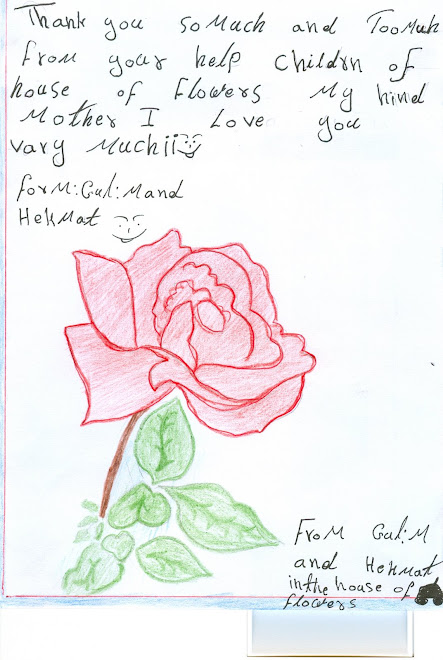 Thank you so Much and Too Much
From your help Childrn of
house of Flowers My kind
Mother I Love you
vary Muchii
ForM:Gul:M and
HeKMat
FroM Gul:M
and HeKMat
in the house of
flowers